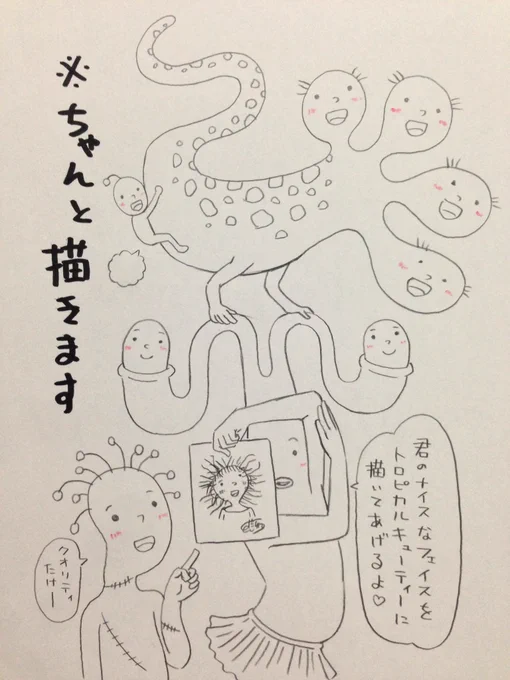 ※ちゃんと描きます
君のナイスなフェイスを
トロピカルキューティーに
描いてあげるよ♡
クオリティ
たけー